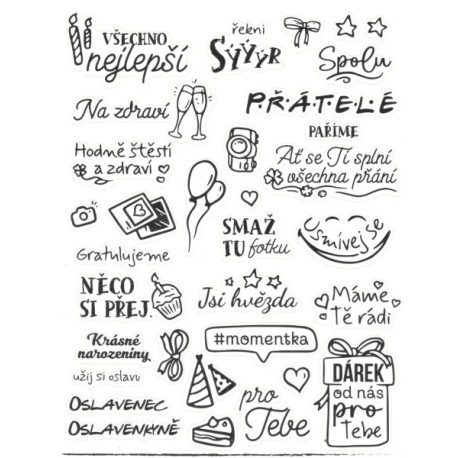 VŠECHNO
nejlepší
řekni
SÝÝÝR
Spolu
Na zdraví
P.Ř.Á.T.E.L.É
PAŘÍME
Hodně štěstí
a zdraví
Ať se Ti splní
všechna přání
Gratulujeme
SMAŽ
TU fotku
usmívej se
NĚCO
SI PŘEJ.
Jsi hvězda
Máme
Tě rádi
Krásné
narozeniny
užij si oslavu
#momentka
OSLAVENEC
OSLAVENKYNĚ
pro
Tebe
DÁREK
od nás
pro
Tebe